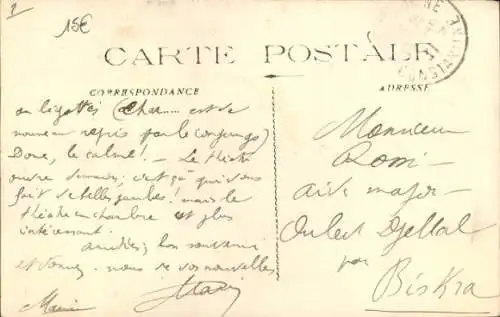 15€
CARTE POSTALE
CORRESPONDANCE
ADRESSE
CONSTANTINE
est de
nouveau repris par le
Donc, le calme! — Le théâtre
ouvre demain; c'est ça qui vous
fait de belles jambes! mais le
théâtre en chambre est plus
intéressant.
Amitiés; bon souvenir
et donnez-nous de vos nouvelles
Monsieur
aide major
Ouled Djellal
par
Biskra